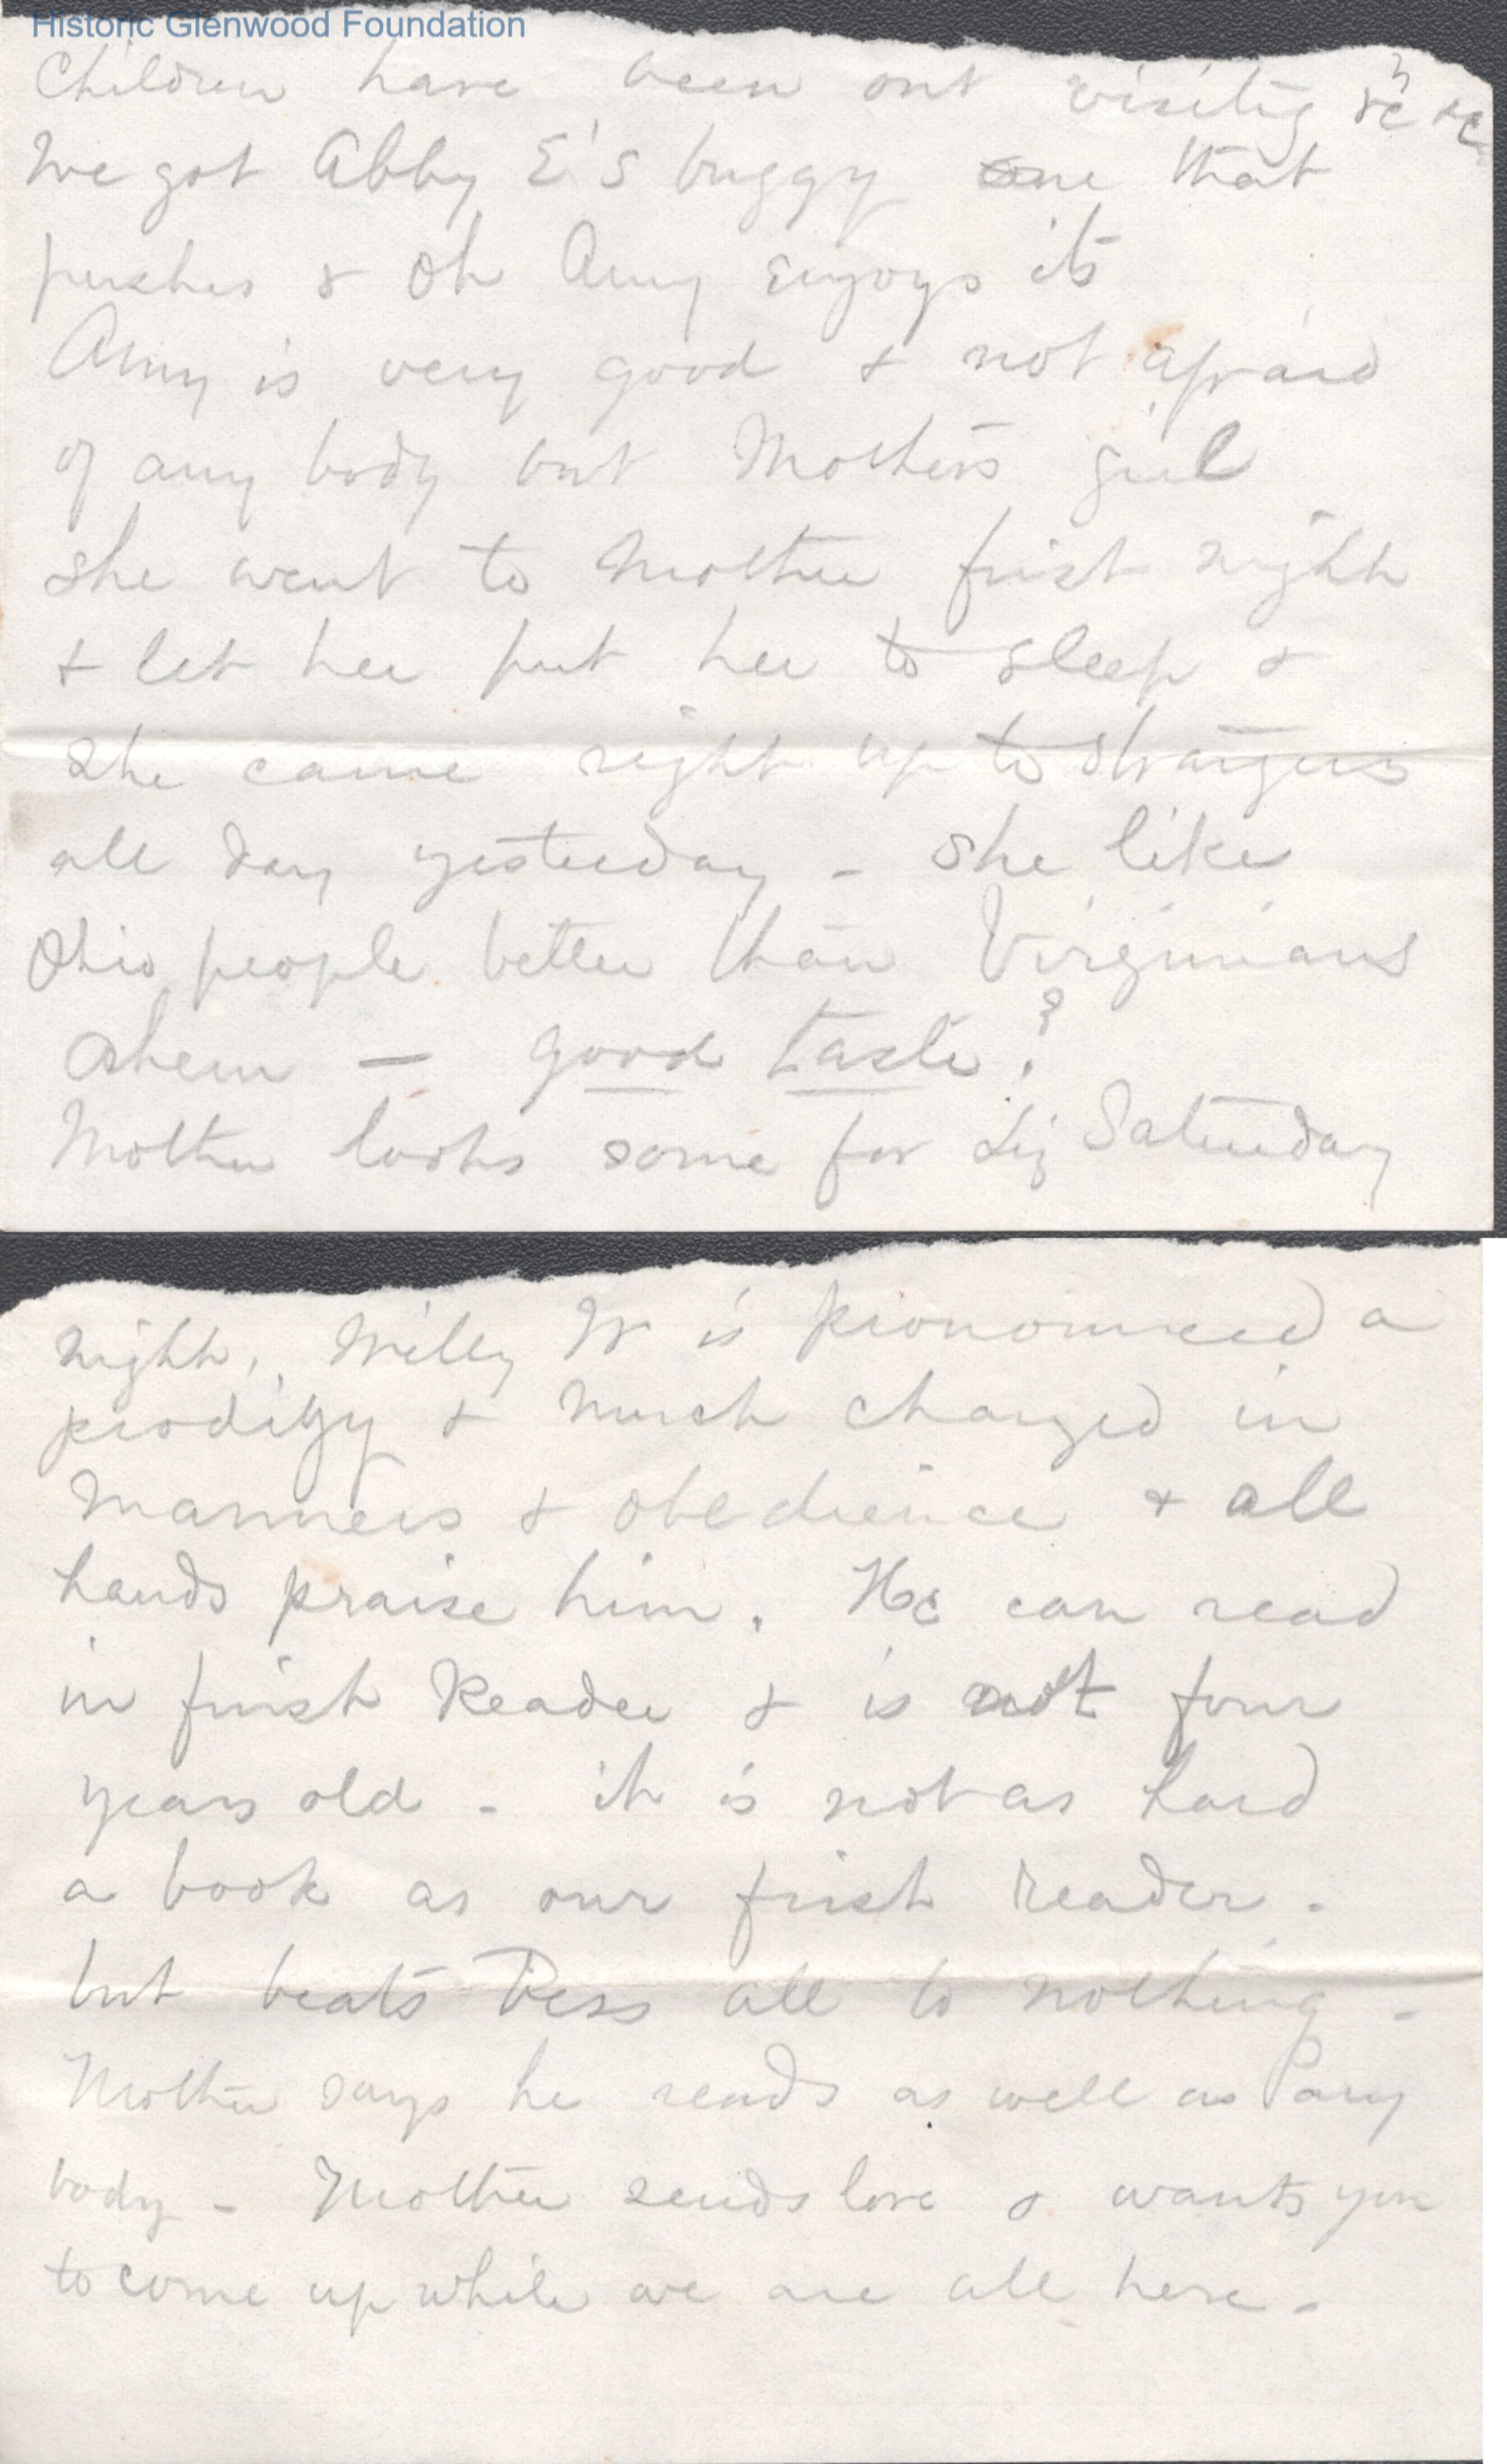 Historic Glenwood Foundation
Children have been out visiting &c &c
We got Abby E's buggy one that
pushes & Oh Amy enjoys it
Amy is very good & not afraid
of any body but Mothers girl
she went to Mother first night
& let her put her to sleep &
she came right up to strangers
all day yesterday - she like
Ohio people better than Virginians
Ahem — good taste?
Mother looks some for Liz Saturday
night, Willy W is pronounced a
prodigy & much changed in
manners & obedience & all
hands praise him. He can read
in first Reader & is not four
years old - it is not as hard
a book as our first reader -
but beats Bess all to nothing -
Mother says he reads as well as any
body - Mother sends love & wants you
to come up while we are all here -